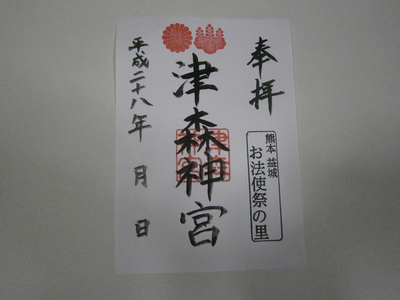 奉拝
熊本 益城
お法使祭の里
津森神宮
平成二十八年 月 日